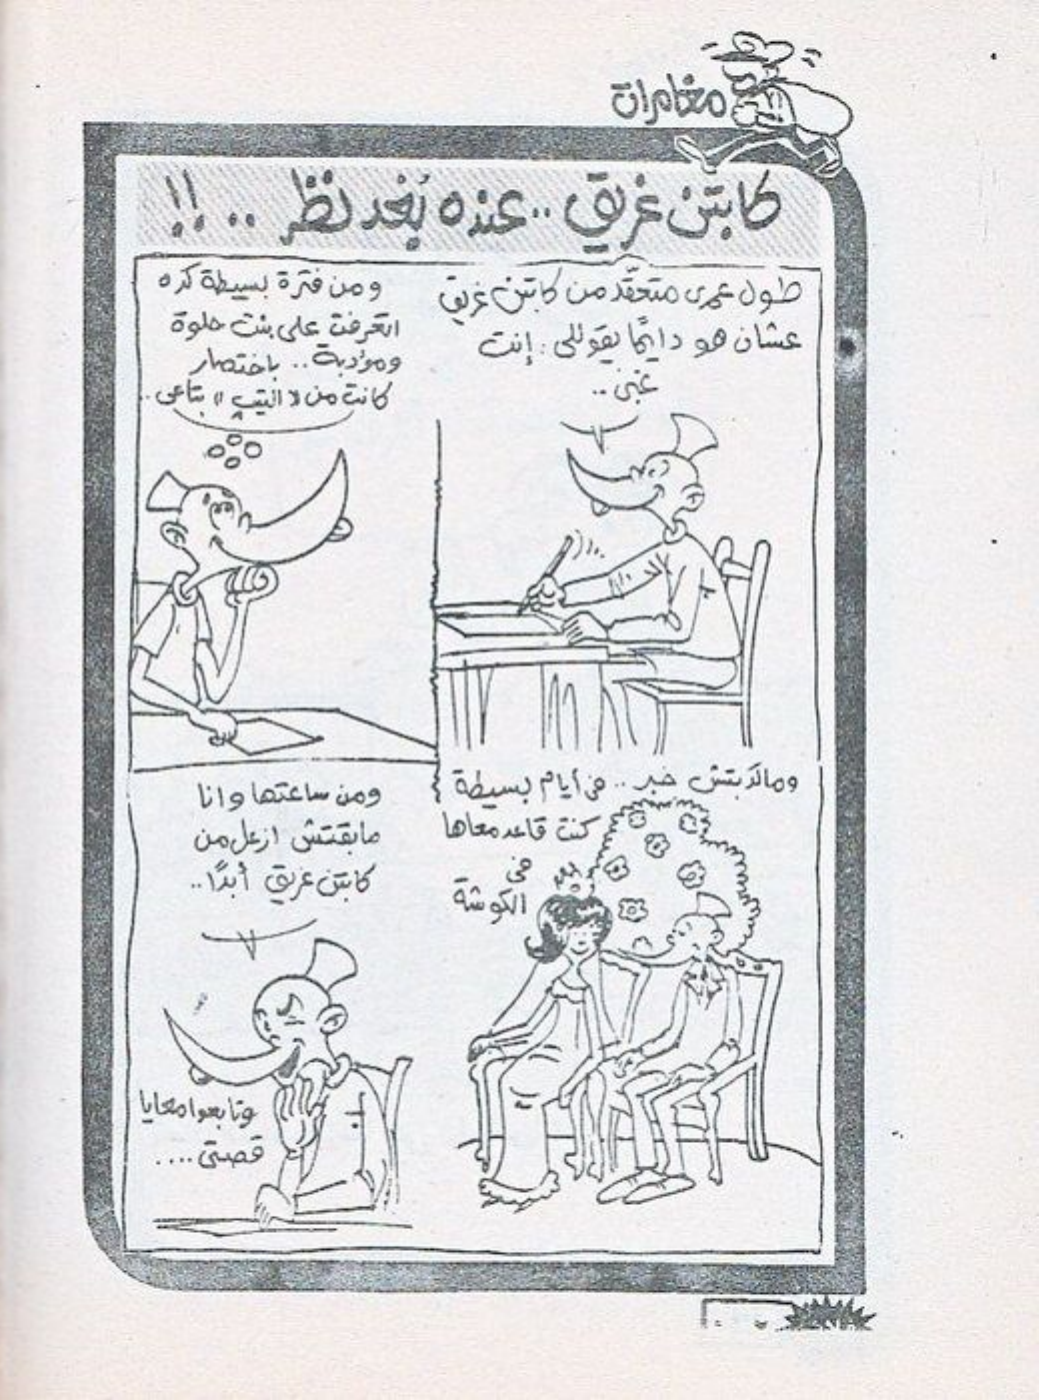 مغامرات
كابتن غريق .. عنده بُعد نظر .. !!
طول عمرى متعقد من كابتن غريق
عشان هو دايمًا يقوللى : إنت
غبى ..
ومن فترة بسيطة كده
اتعرفت على بنت حلوة
ومؤدبة .. باختصار
كانت من « التيب » بتاعى ..
وماكدبتش خبر .. فى أيام بسيطة
كنت قاعد معاها
فى
الكوشة
ومن ساعتها وانا
مابقتش ازعل من
كابتن غريق أبدًا ..
وتابعوا معايا
قصتى ....